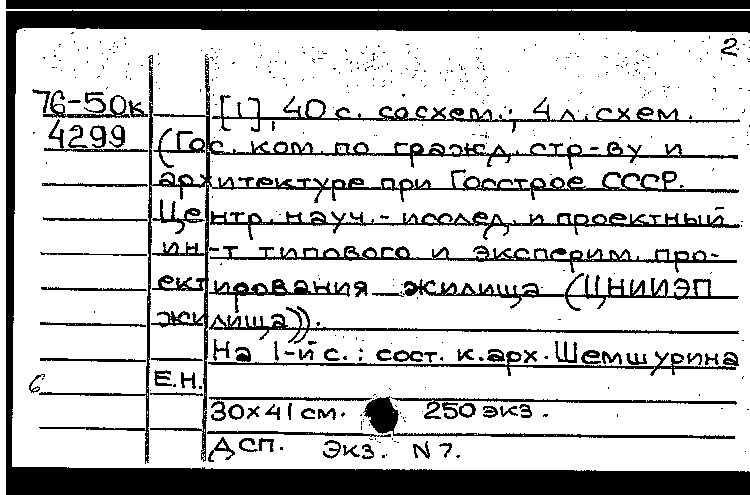 2
76-50к [1], 40 с. со схем.; 4 л. схем.
4299 (Гос. ком. по гражд. стр-ву и
архитектуре при Госстрое СССР.
Центр. науч.-исслед. и проектный
ин-т типового и эксперим. про-
ектирования жилища (ЦНИИЭП
жилища)).
На 1-й с.: сост. к. арх. Шемшурина
6 Е.Н.
30х41 см. 250 экз.
ДСП. Экз. N 7.